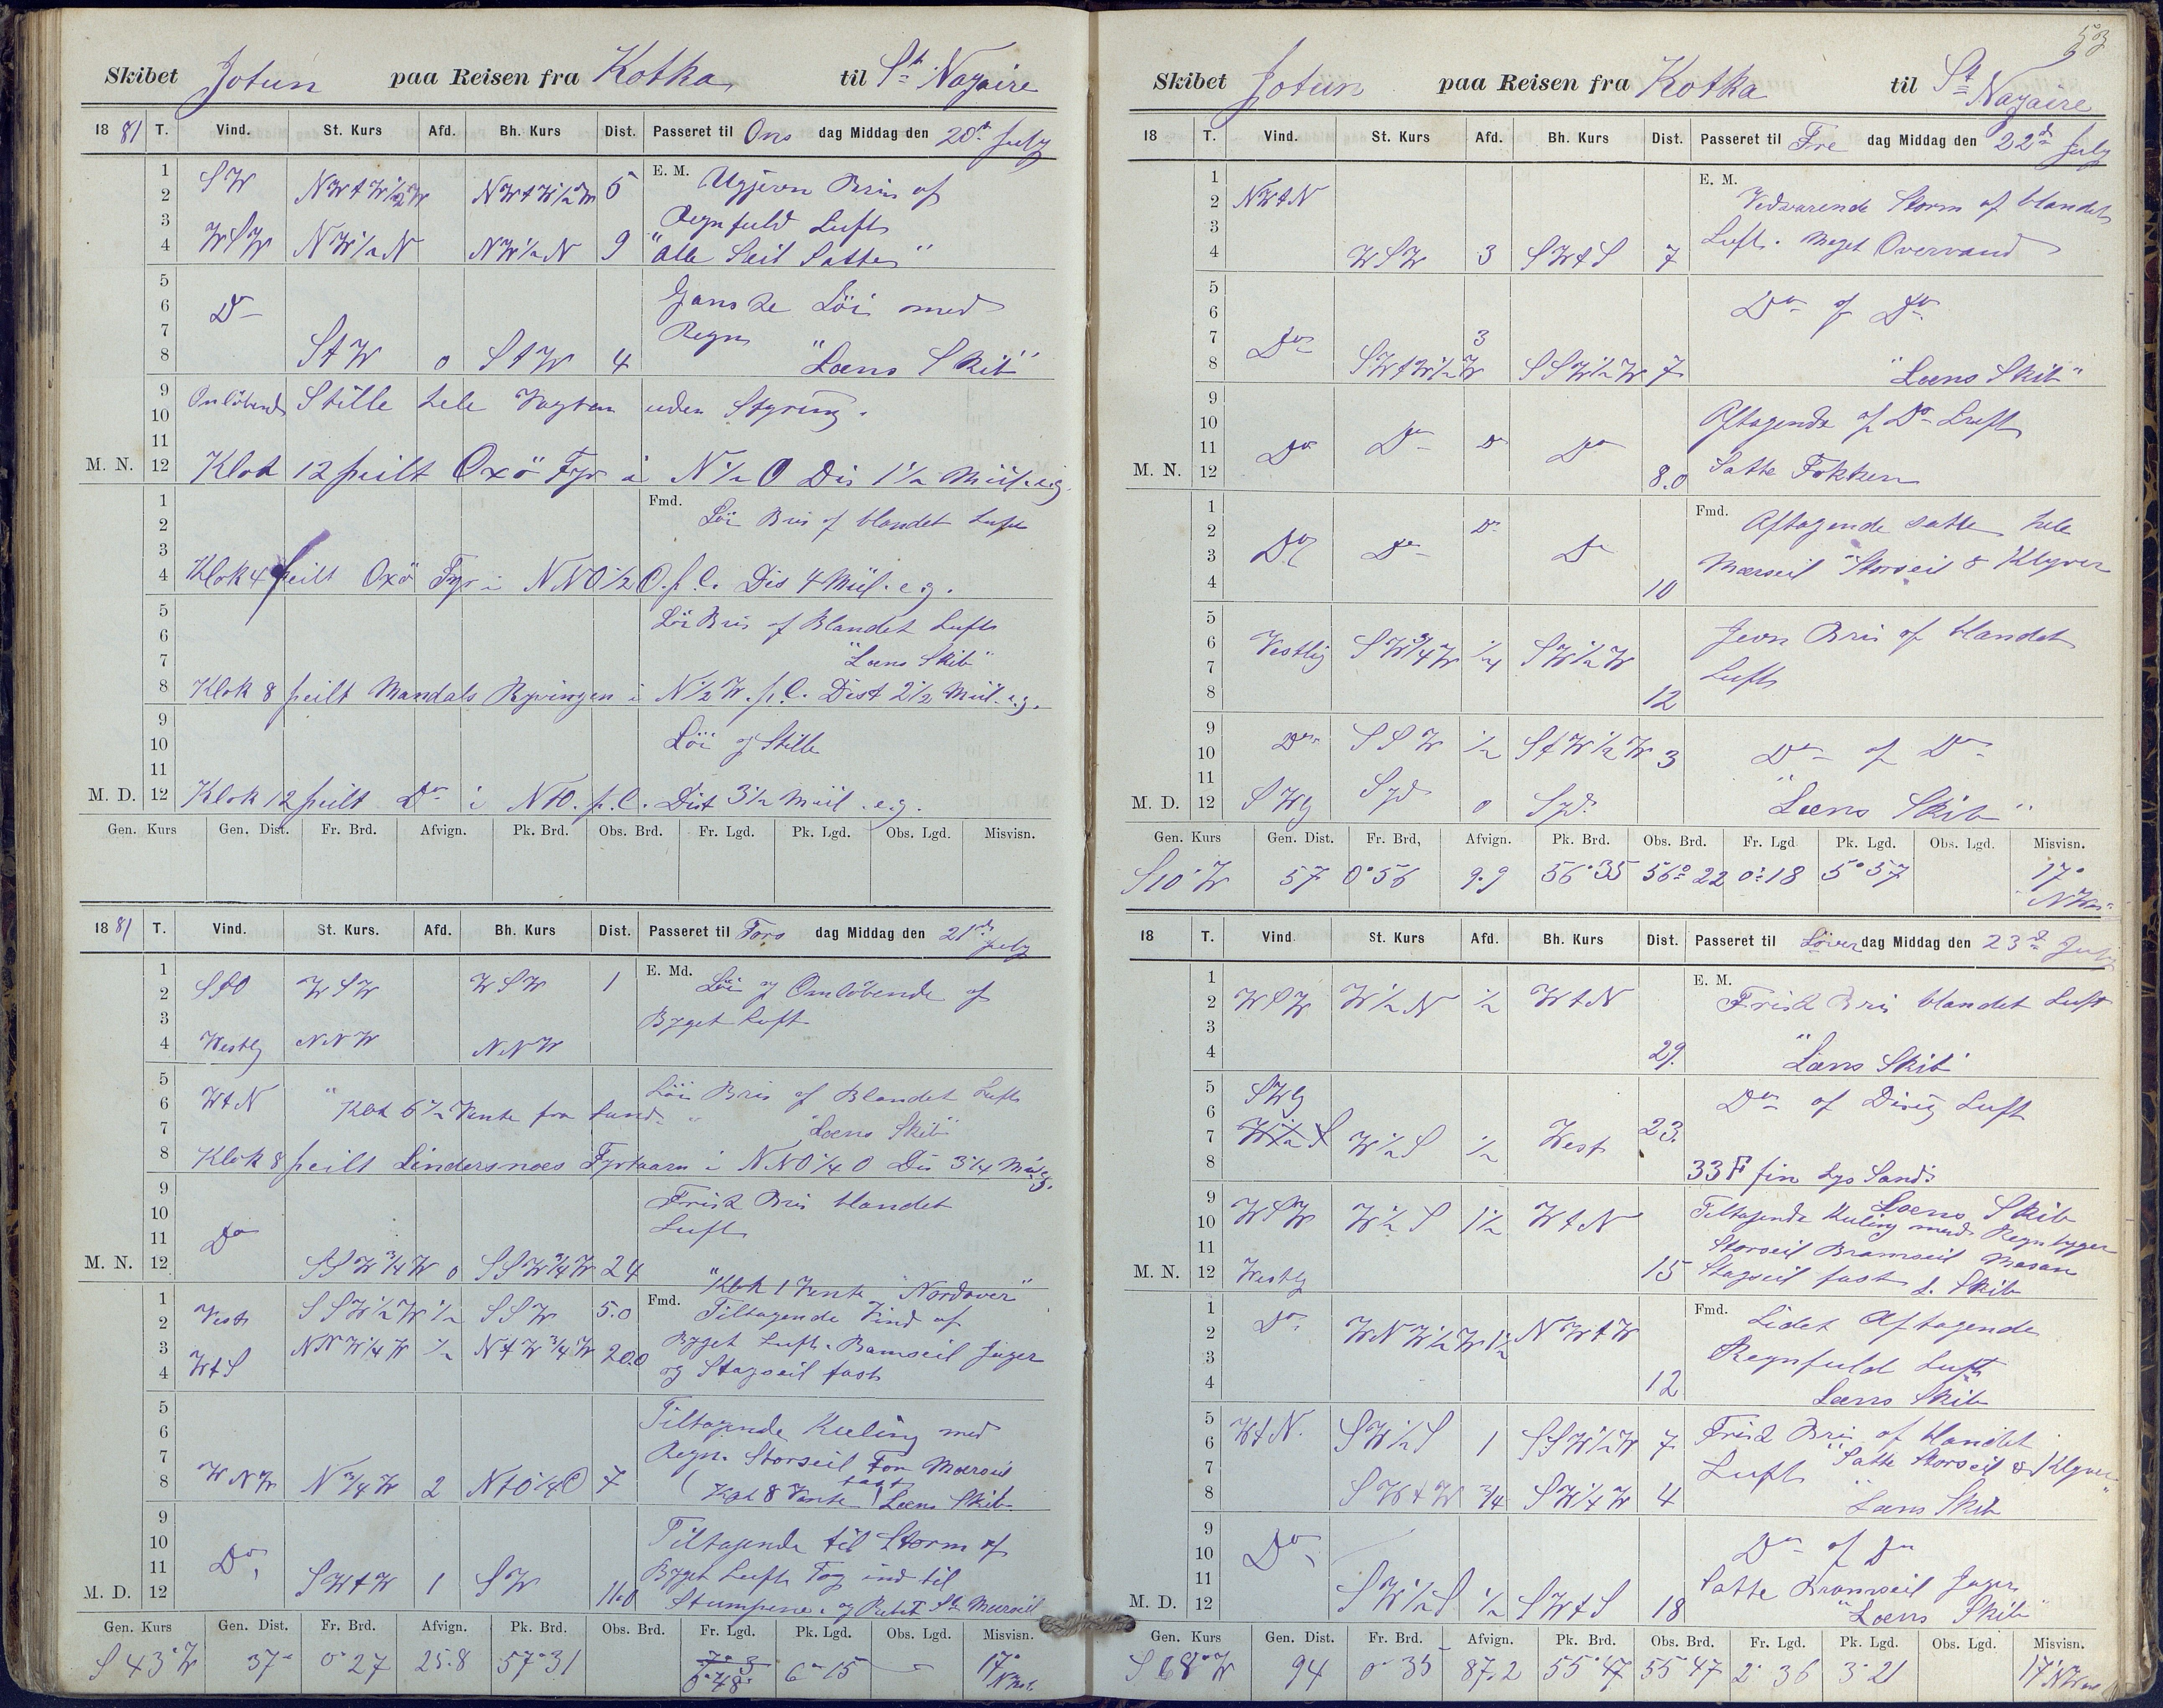 Skibet Jotun paa Reisen fra Kotka til St Nazaire
1881 T. Vind. St. Kurs Afd. Bh. Kurs Dist. Passeret til Ons dag Middag den 20de July
1 SW NWtW½W NWtW½W 5 E. M. Ugjevn Bris af
2
3 Regnfuld Luft
4 WSW NW½N NW½N 9 "Alle Seil Satte"
5 Ganske Löi med
6 Do
7 Regn
8 StW 0 StW 4 "Læns Skib"
9 Omlöbende Stille hele Vagten uden Styring.
10
11
M. N. 12 Klok 12 peilt Oxö Fyr i N½O Dis 1½ Miil. e.g.
1 Fmd. Löi Bris af blandet Luft
2
3
4 Klok 4 peilt Oxö Fyr i NNO½O. p. C. Dis 4 Miil. e.g.
5 Löi Bris af Blandet Luft
6
7 "Læns Skib"
8 Klok 8 peilt Mandals Ryvingen i N½W. p. C. Dist 2½ Miil. e.g.
9
10 Löi og Stille
11
M. D. 12 Klok 12 peilt Do i NtO. p. C. Dist 3½ Miil. e.g.
Gen. Kurs Gen. Dist. Fr. Brd. Afvign. Pk. Brd. Obs. Brd. Fr. Lgd. Pk. Lgd. Obs. Lgd. Misvisn.
1881 T. Vind. St. Kurs. Afd. Bh. Kurs Dist. Passeret til Tors dag Middag den 21de July
1 E. Md. Löi og Omlöbende af
2 StO WSW WSW 1
3 Byget Luft
4 Westlg NNW NNW
5 Löi Bris af Blandet Luft
6 WtN "Klok 6½ Vente fra Land"
7 "Læns Skib"
8 Klok 8 peilt Lindersnæs Fyrtaarn i NNO¼O Dis 3¼ Miil
9 Frisk Bris blandet
10 Luft
11 Do
M. N. 12 SSW¾W 0 SSW¾W 24
"Klok 1 Vente Nordover"
1 Fmd. Tiltagende Vind af
2 Vest SSW½W ½ SSW 5.0
3 NNW¼W ½ NtW¾W 20.0 Byget Luft. Bramseil Jager
4 WtS og Stagseil fast
5 Tiltagende Kuling med
6
7 Regn. Storseil For Mærseil fast
8 WNW N¾W 2 NtO¼O 7 (Klok 8 Vente) Læns Skib
9 Tiltagende til Storm af
10
11 Do Byget Luft Tog ind til
M. D. 12 SWtW 1 SW 11.0 Stumpene. og St Mærseil
Gen. Kurs Gen. Dist. Fr. Brd. Afvign. Pk. Brd. Obs. Brd. Fr. Lgd. Pk. Lgd. Obs. Lgd. Misvisn.
S 43° W 37 0° 27 25.8 57° 31 0° 48 6° 15 17° NVest
53
Skibet Jotun paa Reisen fra Kotka til St Nazaire
18 T. Vind. St. Kurs Afd. Bh. Kurs Dist. Passeret til Fre dag Middag den 22de July
1 E. M.
2 NWtN Vedvarende Storm af blandet
3
4 WSW 3 SWtS 7 Luft. Meget Overvand
5
6 Do af Do
7
8 Do SWtW½W 3 SSW½W 7 "Læns Skib"
9 Aftagende af Do Luft
10
11 Do Do Do Do
M. N. 12 8.0 Satte Fokken
1 Fmd. Aftagende satte hele
2
3 Do Do Do Do Mærseil Storseil & Klyver
4 10
5 Jevn Bris af blandet
6 Vestlig SW¾W ¼ SW½W
7 Luft
8 12
9
10 Do SSW ½ StW½W 3 Do af Do
11
M. D. 12 SWg Syd 0 Syd. "Læns Skib"
Gen. Kurs Gen. Dist. Fr. Brd, Afvign. Pk. Brd. Obs. Brd. Fr. Lgd Pk. Lgd. Obs. Lgd. Misvisn.
S 10° W 57 0° 56 9.9 56° 35 56° 22 0° 18 5° 57 17° NVes
18 T. Vind. St. Kurs. Afd. Bh. Kurs Dist. Passeret til Löver dag Middag den 23de July
1 E. M.
2 WSW W½N ½ WtN Frisk Bris blandet Luft
3
4 29. "Læns Skib"
5 SWg
6 Do af Disig Luft
7 W½S ½ West 23.
8 33 F fin Lys Sand:
Læns Skib
9 Tiltagende Kuling med Regnbyger
10 WSW W½S 1½ WtN
11 Storseil Bramseil Mesan
M. N. 12 Westlg 15 Stagseil fast L. Skib
1 Fmd. Lidet Aftagende
2 Do WNW½W 1½ NWtW
3 Regnfuld Luft
4 12 Læns Skib
5 WtN. SW½S 1 SSW½W 7 Frisk Bris af blandet
6
7 Luft "Satte Storseil & Klyver"
8 SWtW ¾ SW¼W 4 "Læns Skib
9 Do af Do
10 Do
11 Satte Bramseil Jager
M. D. 12 SW½S ½ SWtS 18 "Læns Skib"
Gen. Kurs Gen. Dist. Fr. Brd. Afvign. Pk. Brd. Obs. Brd. Fr. Lgd. Pk. Lgd. Obs. Lgd. Misvisn.
S 68° W 94 0° 35 87.2 55° 47 55° 47 2° 36 3° 21 17° NVes